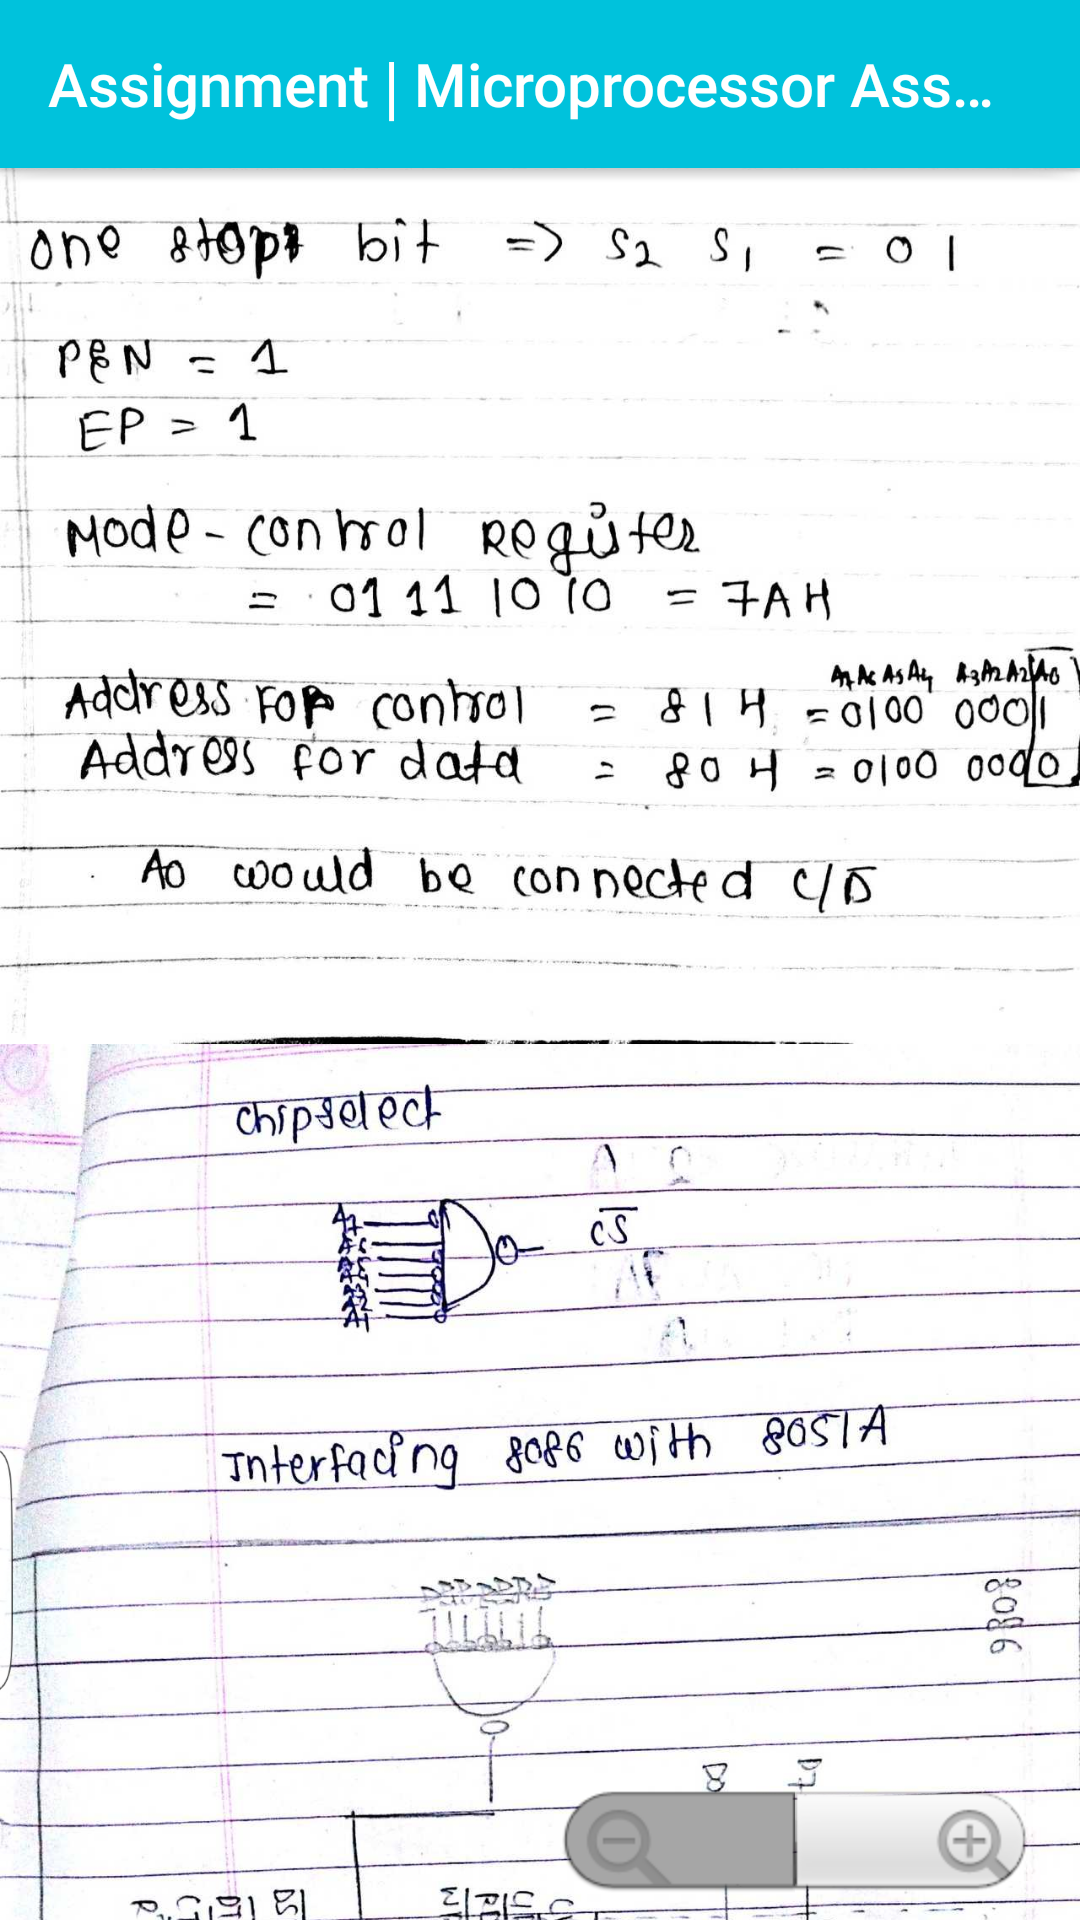 Assignment | Microprocessor Ass...
one stop bit => S2 S1 = 01
PEN = 1
EP = 1
Mode-control Register
= 01 11 10 10 = 7AH
A7 A6 A5 A4 A3 A2 A2 A0
Address For control = 81H = 0100 0001
Address for data = 80H = 0100 0000
A0 would be connected C/D̅
chipselect
A7
A6
A5
A3
A2
A1
C̅S̅
Interfacing 8086 with 8051A
8086
D7